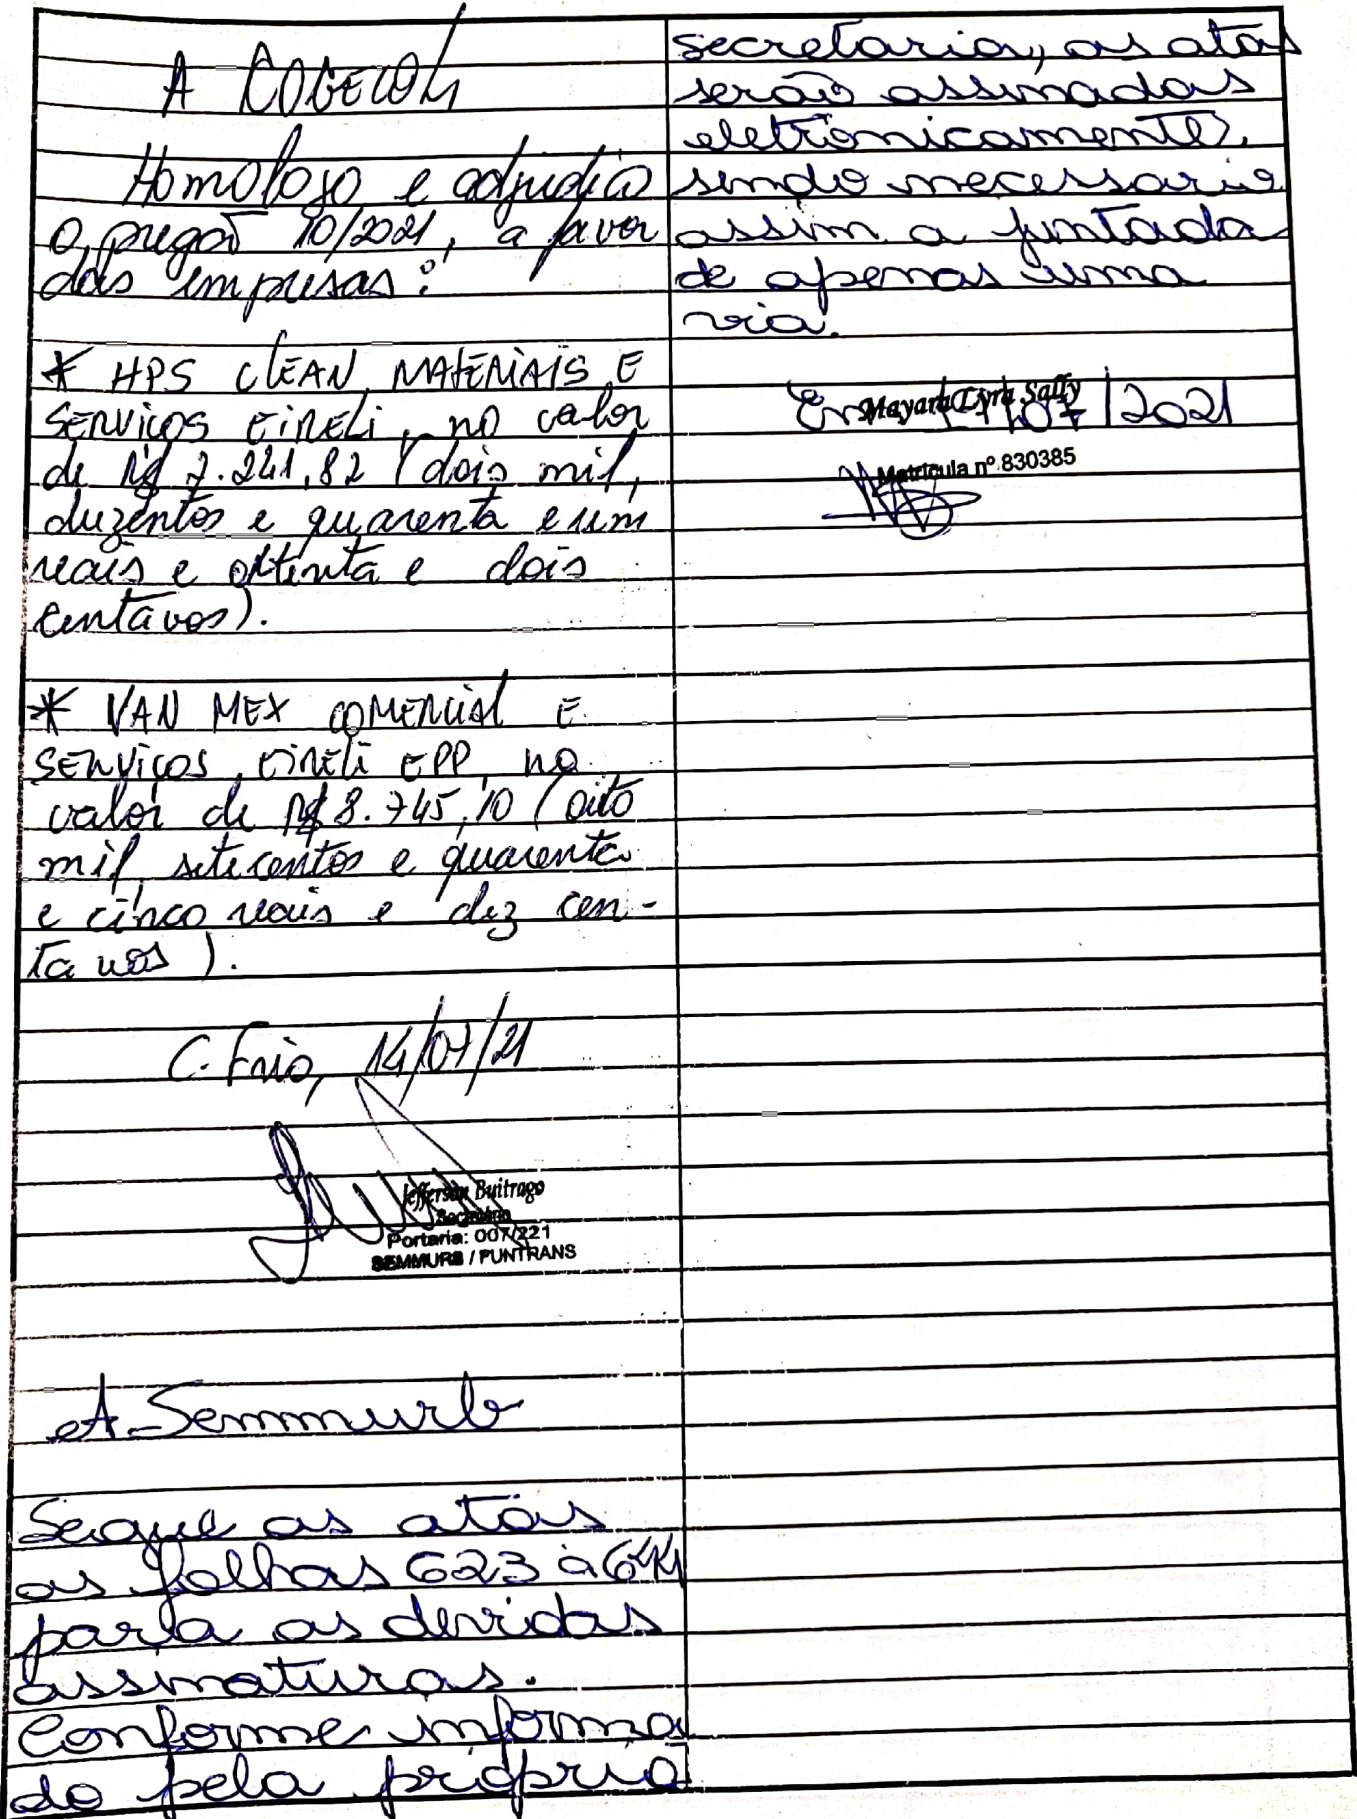 A COGECOL
Homologo e adjudico
o pregão 10/2021, a favor
das empresas:
* HPS CLEAN MATERIAIS E
SERVIÇOS EIRELI, no valor
de R$ 2.241,82 (dois mil,
duzentos e quarenta e um
reais e oitenta e dois
centavos).
* VAN MEX COMERCIAL E
SERVIÇOS EIRELI EPP, no
valor de R$ 8.745,10 (oito
mil, setecentos e quarenta
e cinco reais e dez cen-
tavos).
C. Frio, 14/07/21
Jefferson Buitrago
Secretário
Portaria: 007/221
SEMMURB / FUNTRANS
A Semmurb
Segue as atas
as folhas 623 à 641
para as devidas
assinaturas.
Conforme informa
do pela própria
secretaria, as atas
serão assinadas
eletrônicamente,
sendo necessario
assim a juntada
de apenas uma
via.
Em /07/2021
Mayara Lyra Sally
Matrícula nº 830385